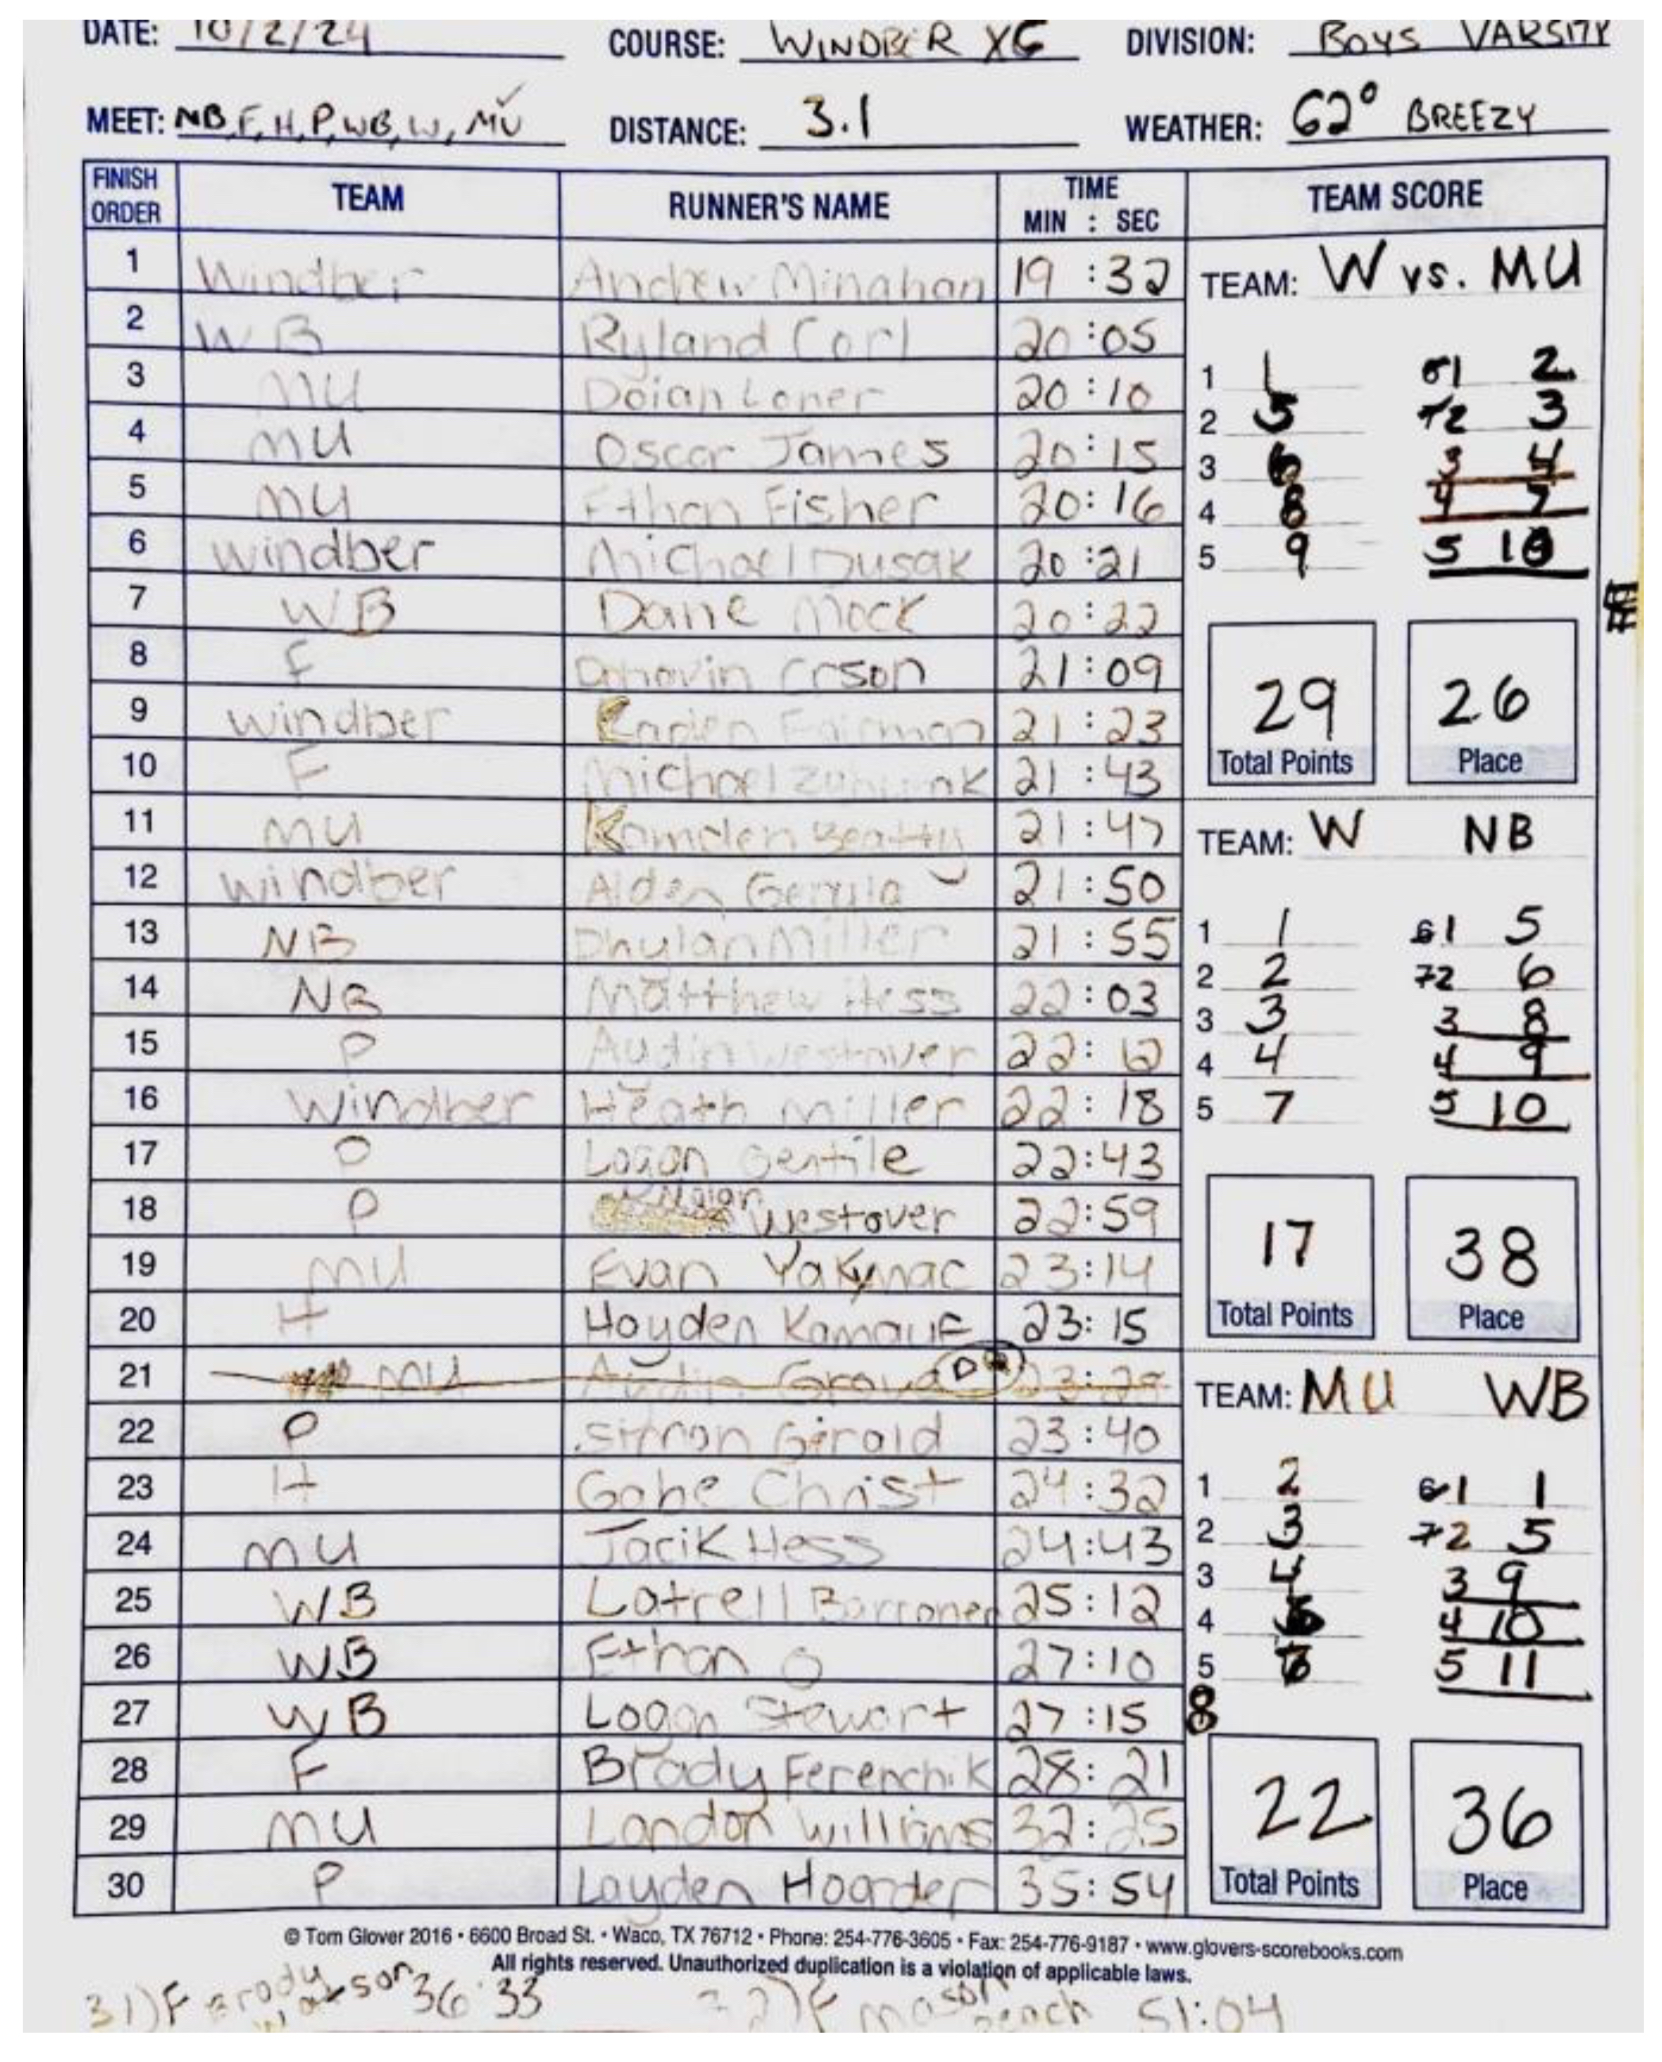 DATE: 10/2/24 COURSE: WINDBER XC DIVISION: BOYS VARSITY
MEET: NB, F, H, P, WB, W, MU DISTANCE: 3.1 WEATHER: 62° BREEZY
FINISH ORDER TEAM RUNNER'S NAME TIME MIN : SEC TEAM SCORE
1 Windber Andrew Minahan 19:32
2 WB Ryland Corl 20:05
3 MU Doian Loner 20:10
4 MU Oscar James 20:15
5 MU Ethan Fisher 20:16
6 Windber Michael Dusak 20:21
7 WB Dane Mock 20:22
8 F 21:09
9 Windber Caden Fairman 21:23
10 F Michael 21:43
11 MU Kamden Beatty 21:47
12 Windber Alden 21:50
13 NB Dhylan Miller 21:55
14 NB Matthew Hess 22:03
15 P Westover 22:12
16 Windber Heath Miller 22:18
17 P Logan Gentile 22:43
18 P Westover 22:59
19 MU Evan Yakymac 23:14
20 H Hayden Kamauf 23:15
21 MU 23:29
22 P Simon Girald 23:40
23 H Gabe Christ 24:32
24 MU Jacik Hess 24:43
25 WB Latrell Barroner 25:12
26 WB Ethan G 27:10
27 WB Logan Stewart 27:15
28 F Brady Ferenchik 28:21
29 MU Landon Williams 32:25
30 P Layden Hoarder 35:54
TEAM: W vs. MU
1 1 1 2
2 5 2 3
3 6 3 4
4 8 4 7
5 9 5 10
29 26
Total Points Place
TEAM: W NB
1 1 61 5
2 2 72 6
3 3 3 8
4 4 4 9
5 7 5 10
17 38
Total Points Place
TEAM: MU WB
1 2 61 1
2 3 72 5
3 4 3 9
4 4 10
5 5 11
8
22 36
Total Points Place
© Tom Glover 2016 • 6600 Broad St. • Waco, TX 76712 • Phone: 254-776-3605 • Fax: 254-776-9187 • www.glovers-scorebooks.com
All rights reserved. Unauthorized duplication is a violation of applicable laws.
31) F Brody Watson 36:33 32) F Mason 51:04